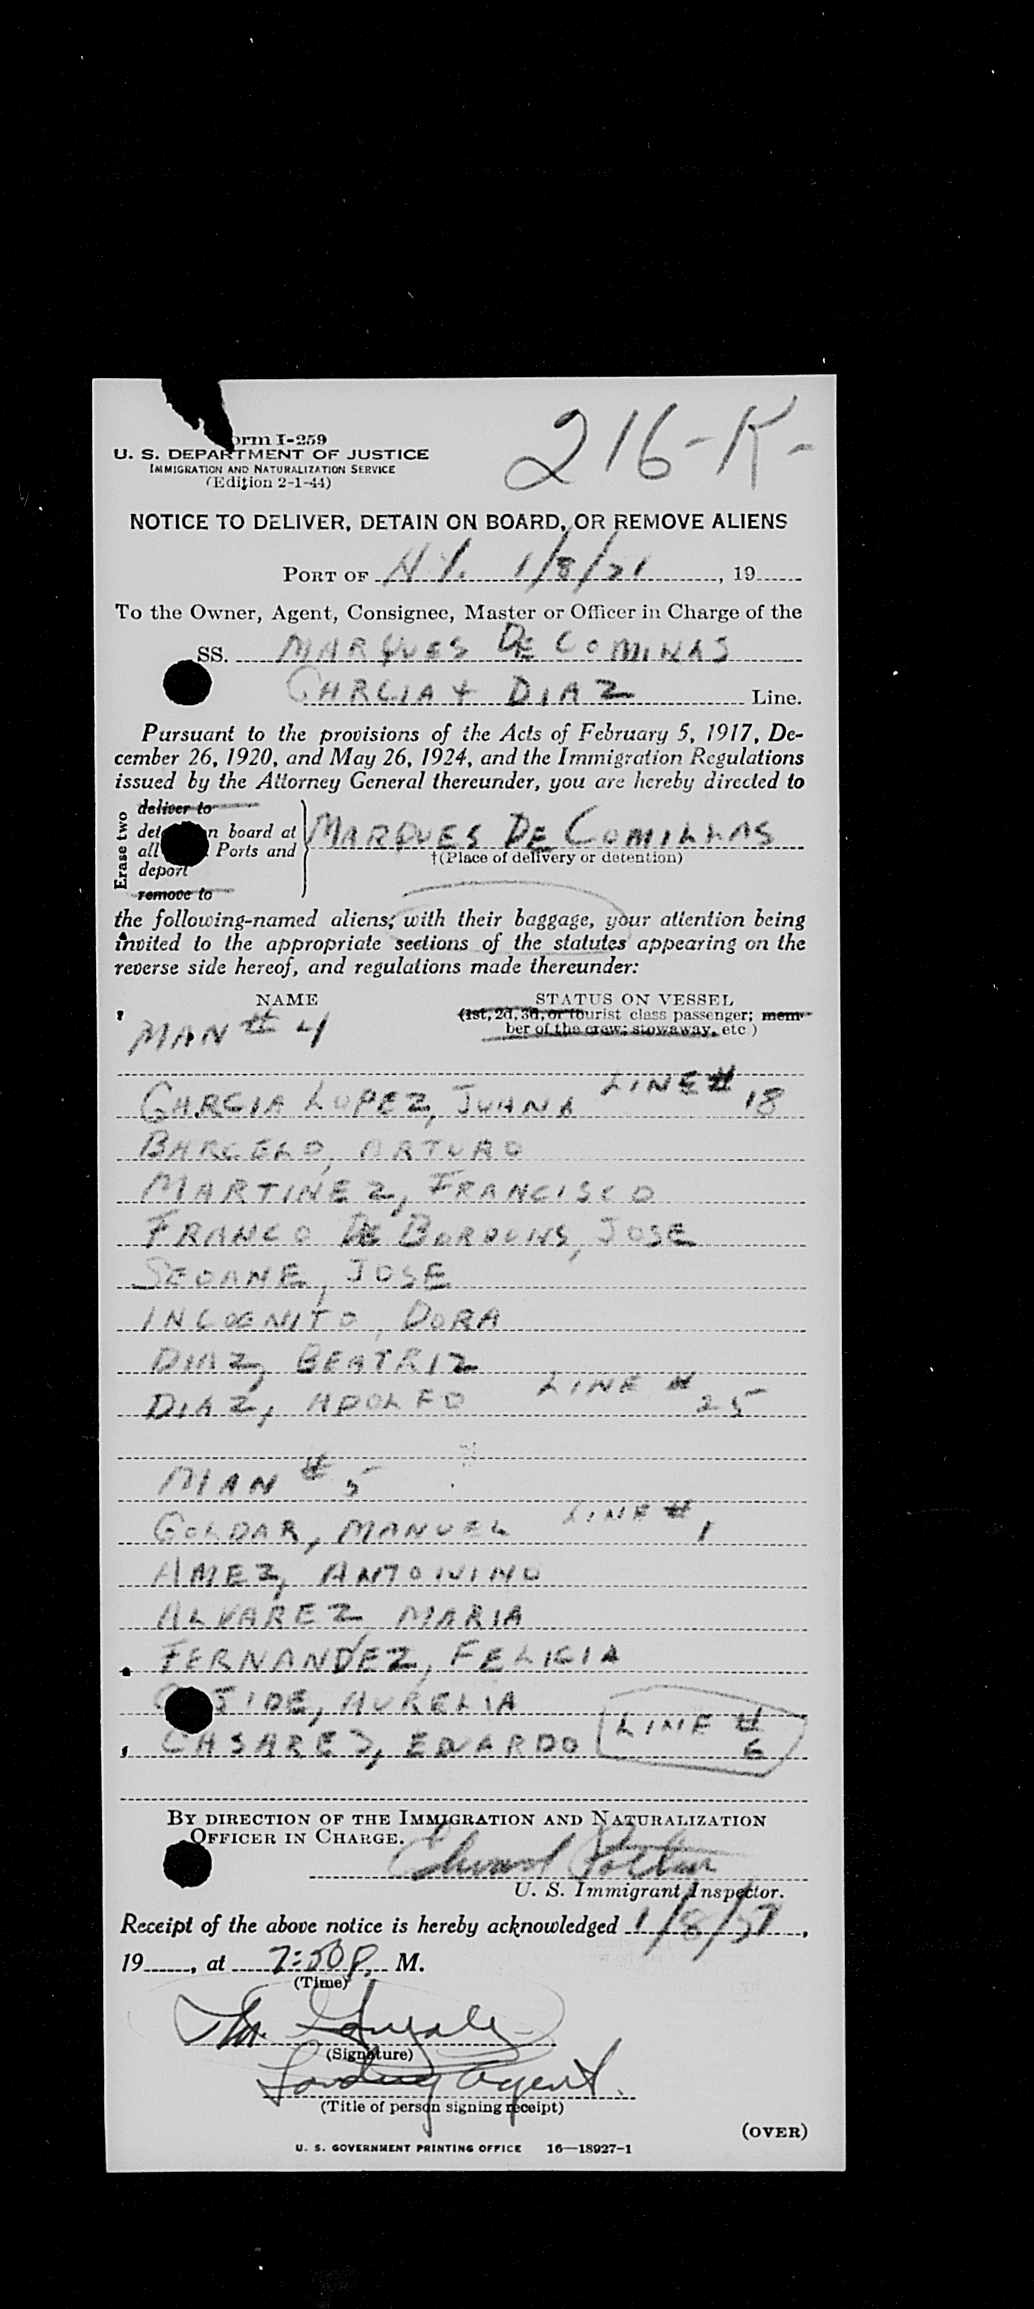 216-K-
orm I-259
U. S. DEPARTMENT OF JUSTICE
IMMIGRATION AND NATURALIZATION SERVICE
(Edition 2-1-44)
NOTICE TO DELIVER, DETAIN ON BOARD, OR REMOVE ALIENS
PORT OF N.Y. 1/8/51, 19
To the Owner, Agent, Consignee, Master or Officer in Charge of the
SS. MARQUES DE COMINAS
GARCIA + DIAZ Line.
Pursuant to the provisions of the Acts of February 5, 1917, De-
cember 26, 1920, and May 26, 1924, and the Immigration Regulations
issued by the Attorney General thereunder, you are hereby directed to
Erase two
deliver to
det n board at
all Ports and
deport
remove to
MARQUES DE COMILLAS
†(Place of delivery or detention)
the following-named aliens, with their baggage, your attention being
invited to the appropriate sections of the statutes appearing on the
reverse side hereof, and regulations made thereunder:
NAME STATUS ON VESSEL
(1st, 2d, 3d, or tourist class passenger; mem-
ber of the crew; stowaway, etc.)
MAN # 4
GARCIA LOPEZ, JUANA LINE # 18
BARCELO, ARTURO
MARTINEZ, FRANCISCO
FRANCO DE BORDONS, JOSE
SEOANE, JOSE
INCOGNITO, DORA
DIAZ, BEATRIZ
DIAZ, ADOLFO LINE # 25
MAN # 5
GOLDAR, MANUEL LINE # 1
AMEZ, ANTONINO
ALVAREZ MARIA
FERNANDEZ, FELICIA
SIDE, AURELIA
CASAREZ, EDUARDO LINE # 6
BY DIRECTION OF THE IMMIGRATION AND NATURALIZATION
OFFICER IN CHARGE.
Edward
U. S. Immigrant Inspector.
Receipt of the above notice is hereby acknowledged 1/8/51,
19, at 7:50 P. M.
(Time)
Thr. Gonzalez
(Signature)
Landing Agent.
(Title of person signing receipt)
(OVER)
U. S. GOVERNMENT PRINTING OFFICE 16—18927-1